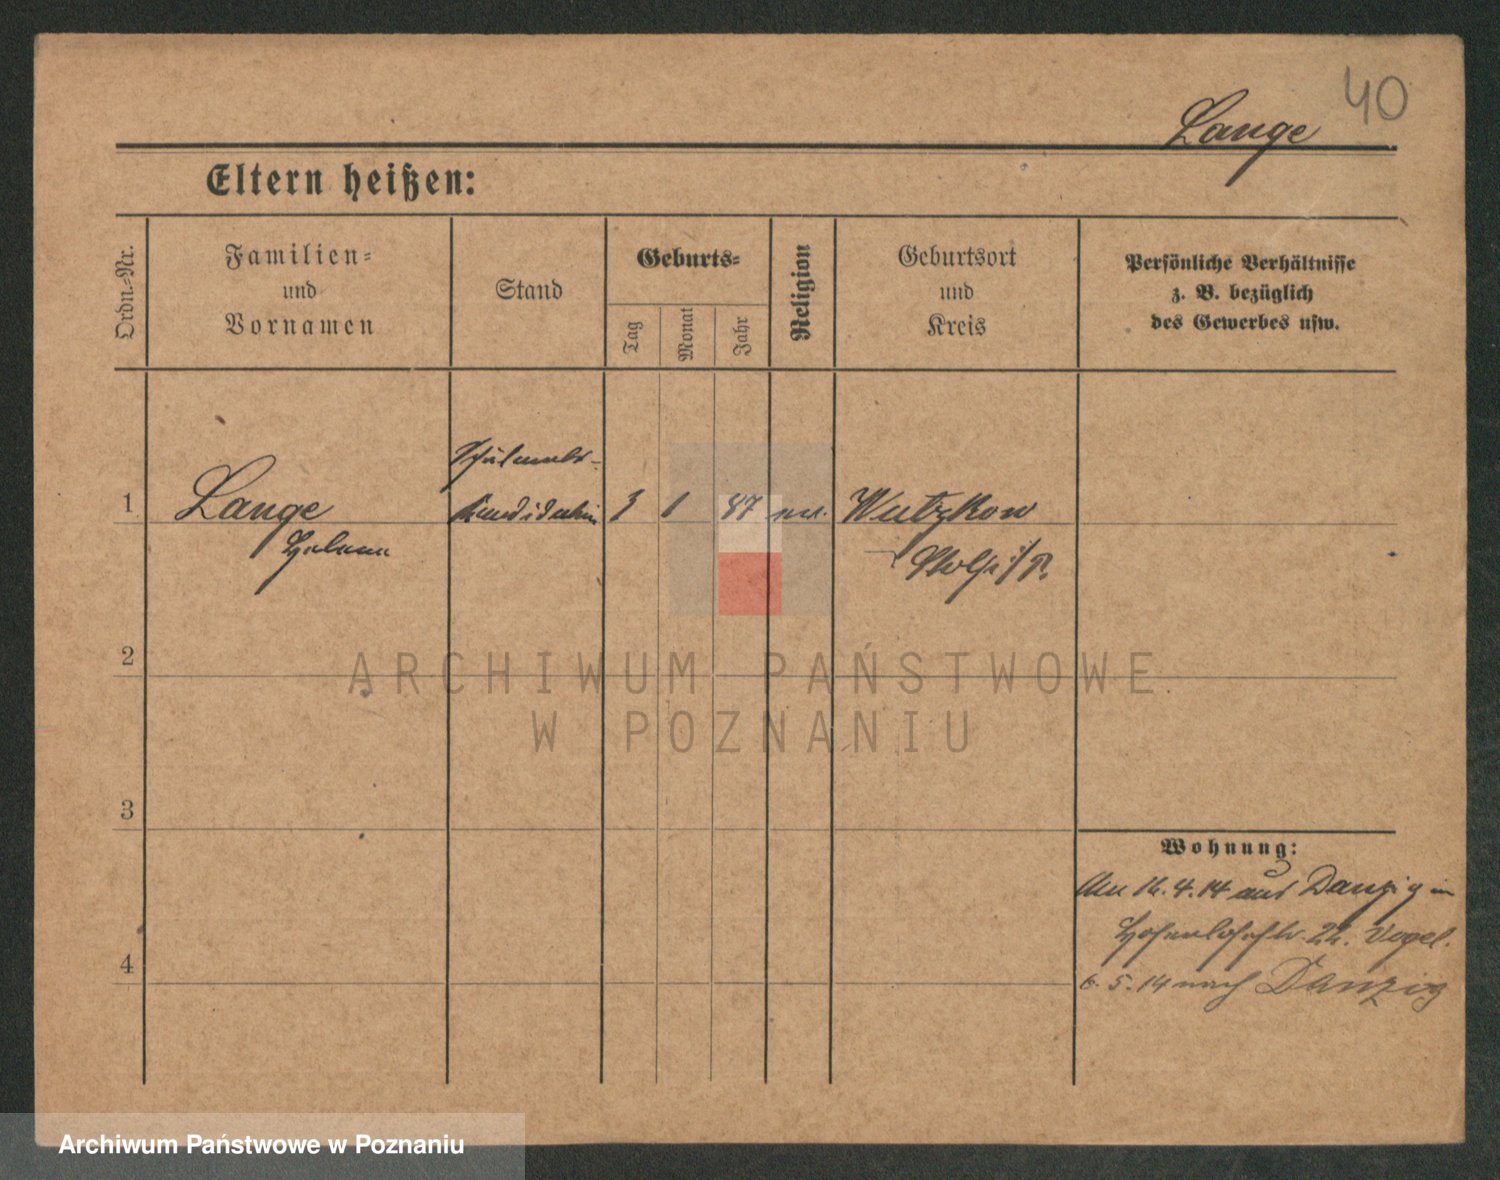 40
Lange
Eltern heißen:
Ordn.-Nr.
Familien-
und
Vornamen
Stand
Geburts-
Tag
Monat
Jahr
Religion
Geburtsort
und
Kreis
Persönliche Verhältnisse
z. B. bezüglich
des Gewerbes usw.
1
Lange
Helene
Schulamts-
kandidatin
3
1
87
ev.
Wutzkow
Stolp i/P.
2
3
4
Wohnung:
Am 16.4.14 aus Danzig in
Hohenlohestr. 22. Vogel.
6.5.14 nach Danzig
ARCHIWUM PAŃSTWOWE
W POZNANIU
Archiwum Państwowe w Poznaniu